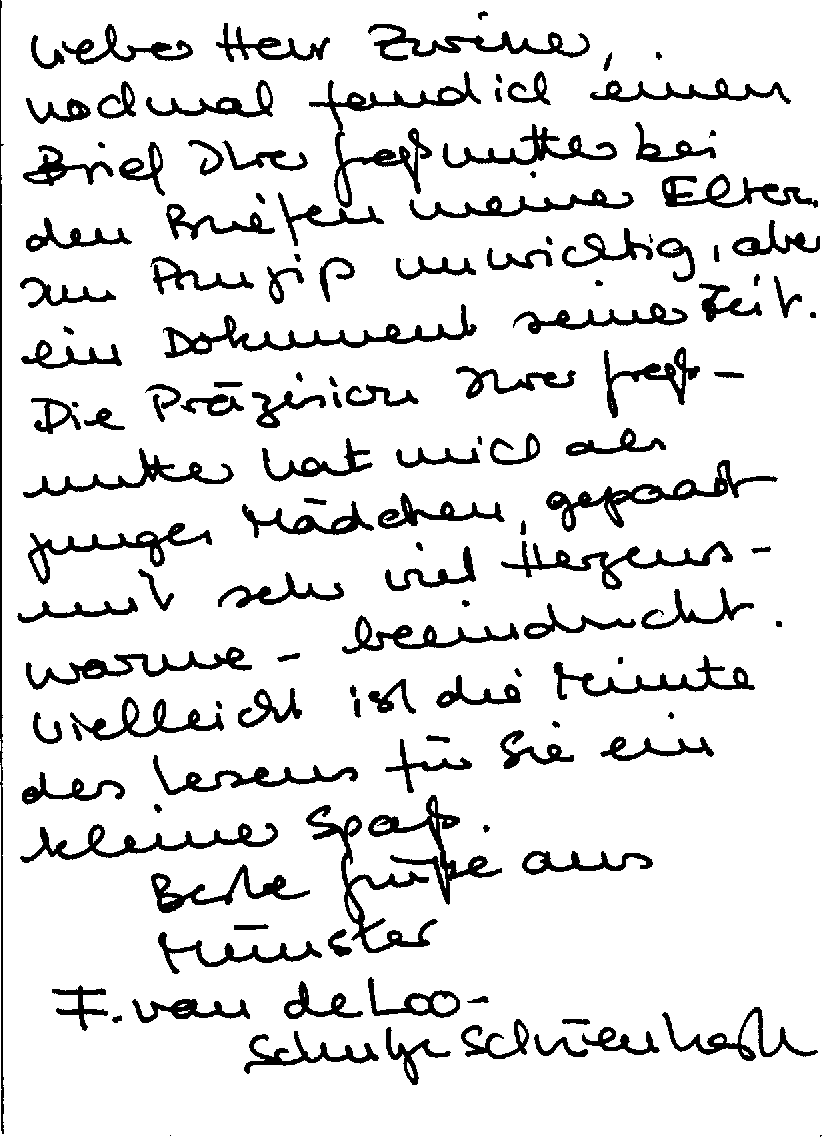 Lieber Herr Zwirner,
nochmal fand ich einen
Brief Ihrer Großmutter bei
den Briefen meiner Eltern.
Im Prinzip unwichtig, aber
ein Dokument seiner Zeit.
Die Präzision Ihrer Groß-
mutter hat mich als
junges Mädchen, gepaart
mit sehr viel Herzens-
wärme - beeindruckt.
Vielleicht ist die Minute
des Lesens für Sie ein
kleiner Spaß.
Beste Grüße aus
Münster
F. van de Loo-